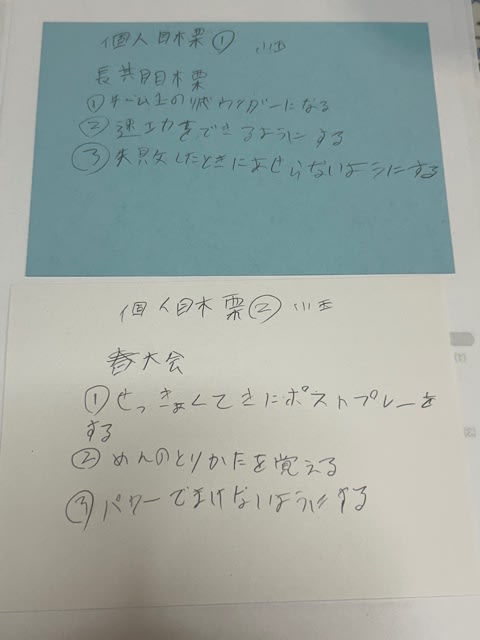 個人目木票① 川西
長期目木票
①チーム1のリバウンダーになる
②速エカをできるようにする
③失敗したときにあせらないようにする
個人目木票② 川西
春大会
①せっきょくてきにポストプレーを
する
②めんのとりかたを覚える
③パワーでまけないようにする